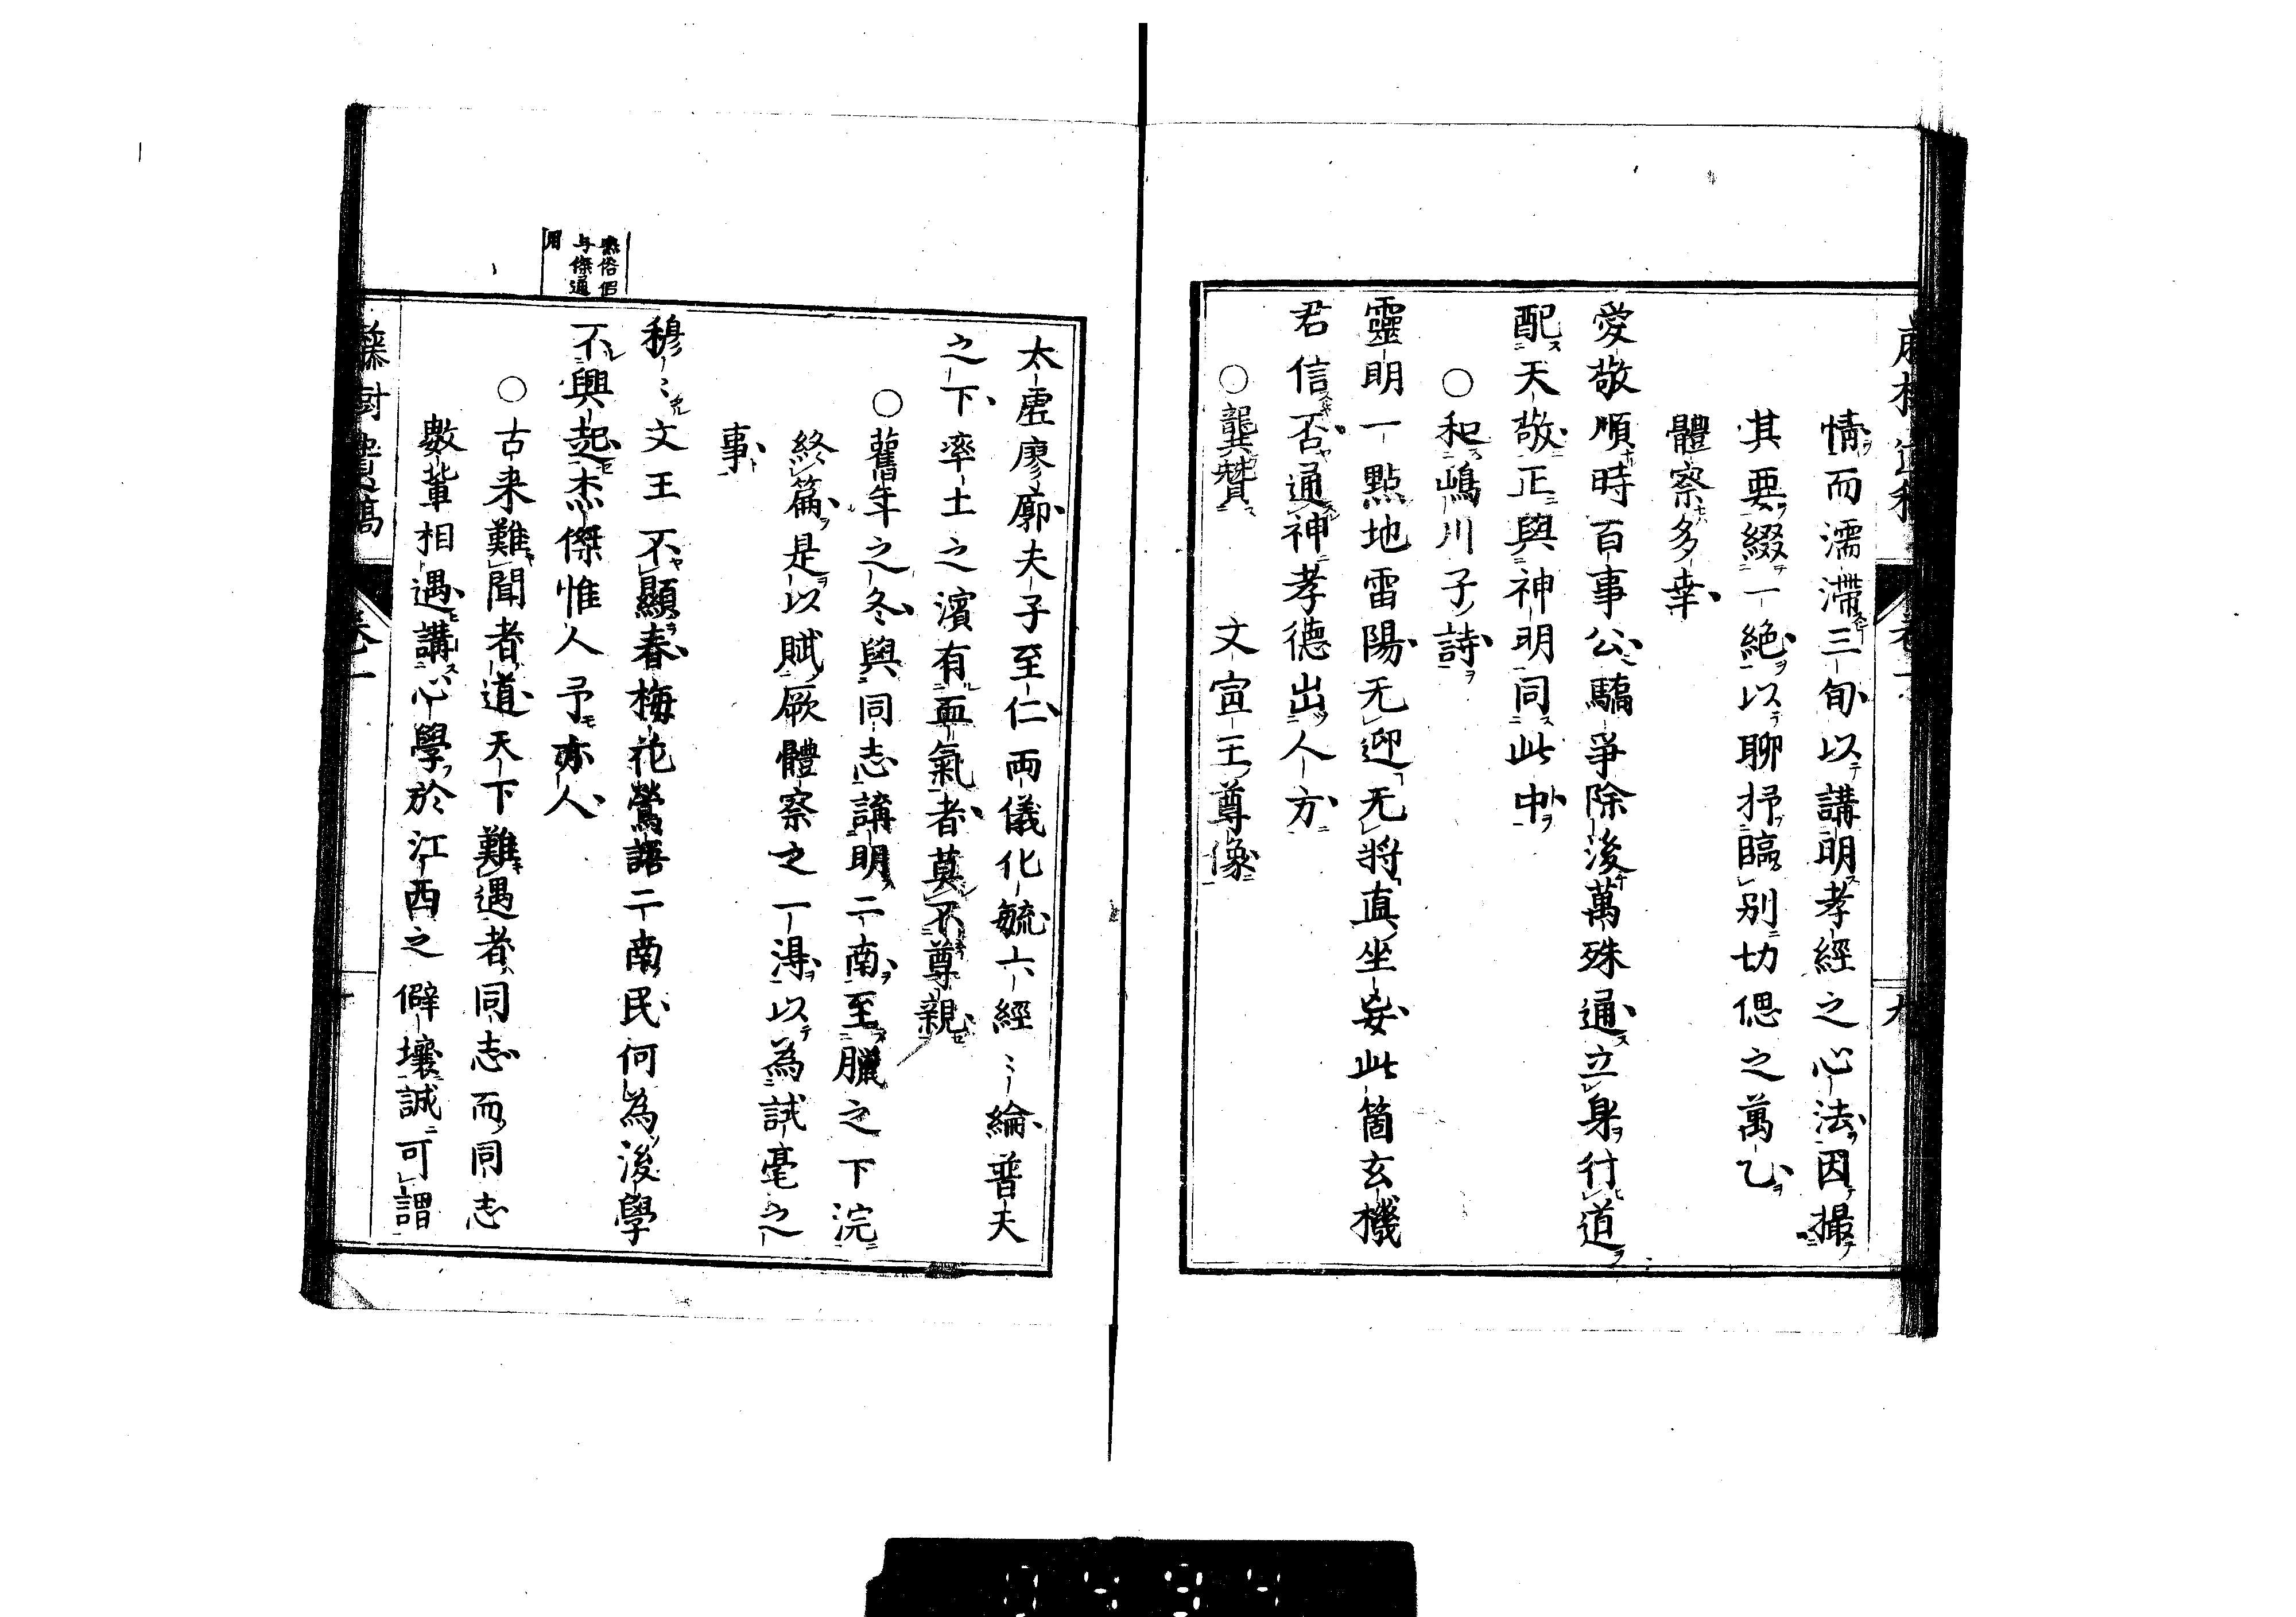 情而濡滯三旬以講明孝經之心法因撮
其要綴一絶以聊抒臨別切偲之萬乙
體察多幸
愛敬順時百事公驕爭除後萬殊通立身行道
配天敬正與神明同此中
○和嶋川子詩
靈明一點地雷陽无迎无將直坐妄此箇玄機
君信否通神孝德出人方
○龔贊 文宣王尊像
太虛廖廓夫子至仁兩儀化毓六經〻綸普天
之下率土之濱有血氣者莫不尊親
○舊年之冬與同志講明二南至臘之下浣
終篇是以賦厥體察之一得以為試毫之
事
穆〻文王不顯春梅花鶯語二南民何為後學
不興起杰傑惟人予亦人
○古来難聞者道天下難遇者同志而同志
數輩相遇講心學於江西之僻壤誠可謂
杰俗倡
与傑通
用
藤樹遺稿 卷一